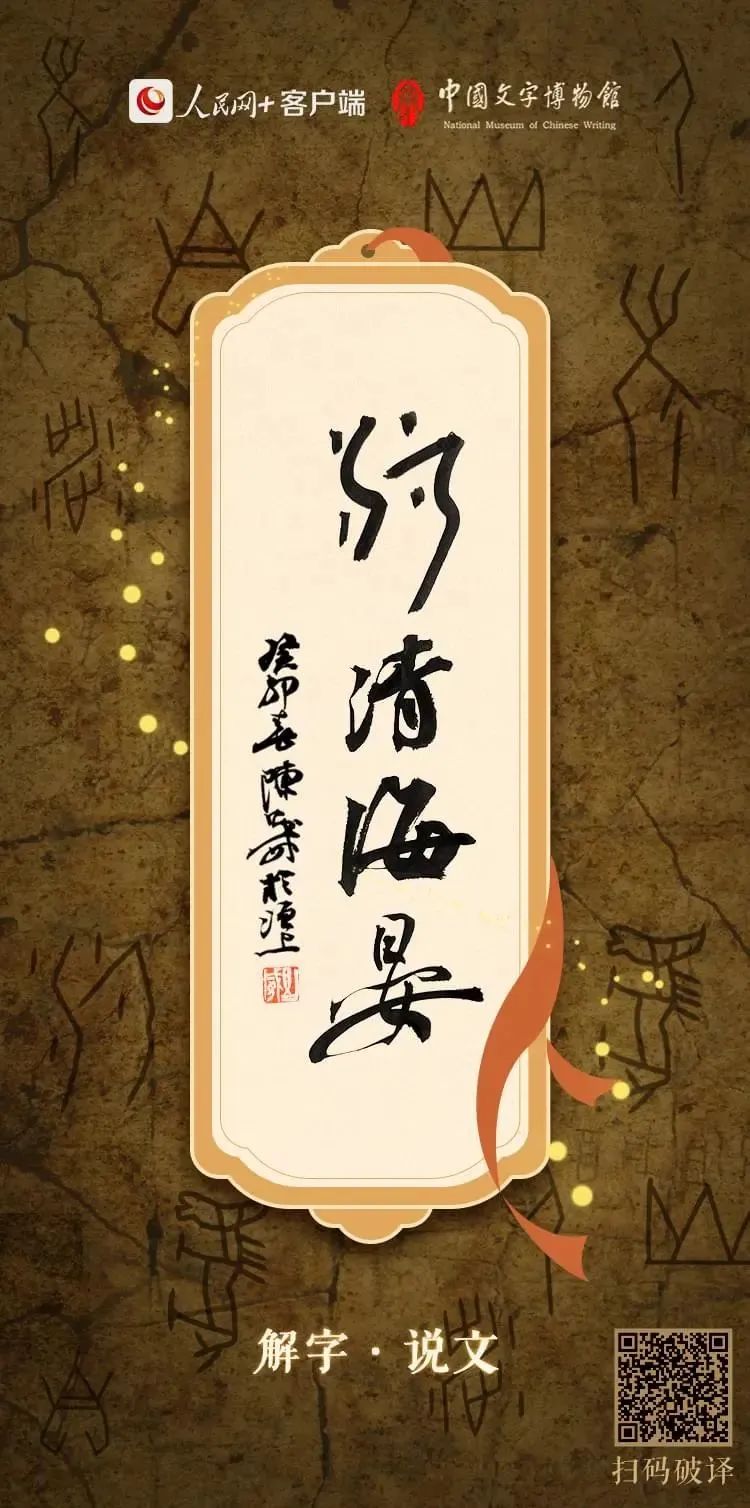 人民网+客户端
中國文字博物館
National Museum of Chinese Writing
河清海晏
癸卯春陳 於洹上
解字·说文
扫码破译